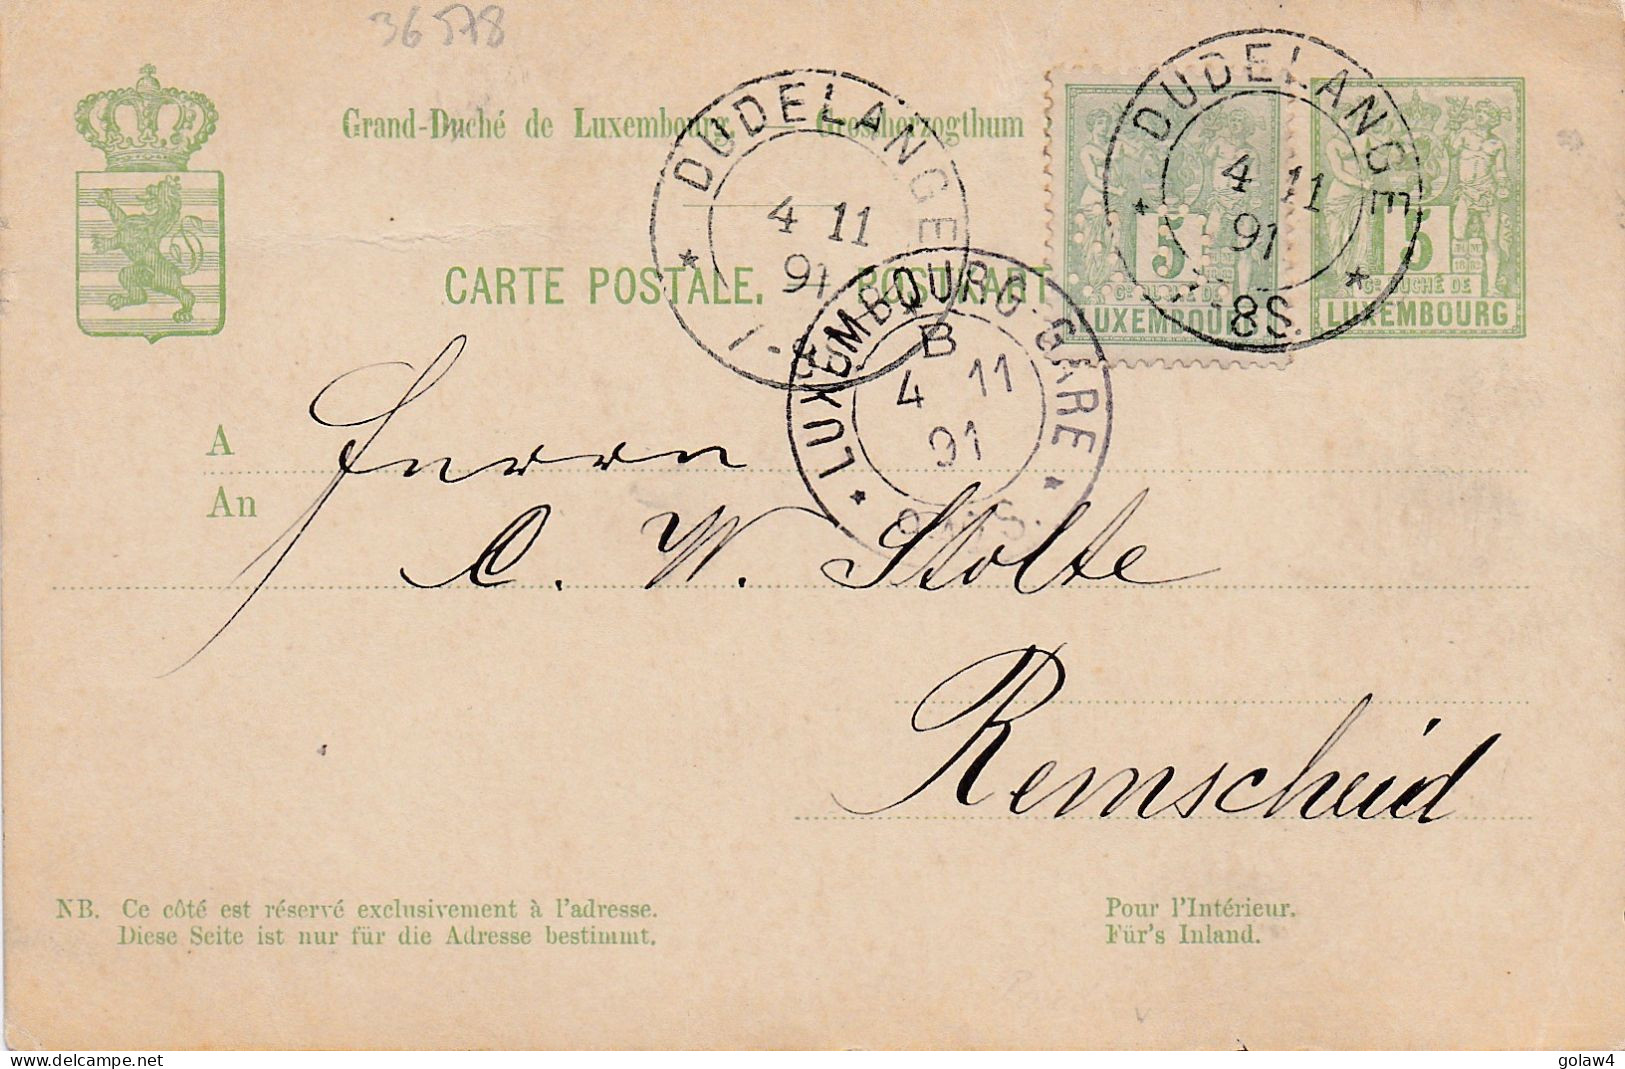 36578
Grand-Duché de Luxembourg. Grossherzogthum
CARTE POSTALE. POSTKART
DUDELANGE
4 11
91
DUDELANGE
4 11
91
8S.
LUXEMBOURG-GARE
B
4 11
91
5
Gᴰ DUCHÉ DE
UXEMBOURG
5
Gᴰ DUCHÉ DE
LUXEMBOURG
A
An
Herrn
C. W. Stolte
Remscheid
NB. Ce côté est réservé exclusivement à l'adresse.
Diese Seite ist nur für die Adresse bestimmt.
Pour l'Intérieur.
Für's Inland.
delcampe.net
golaw4